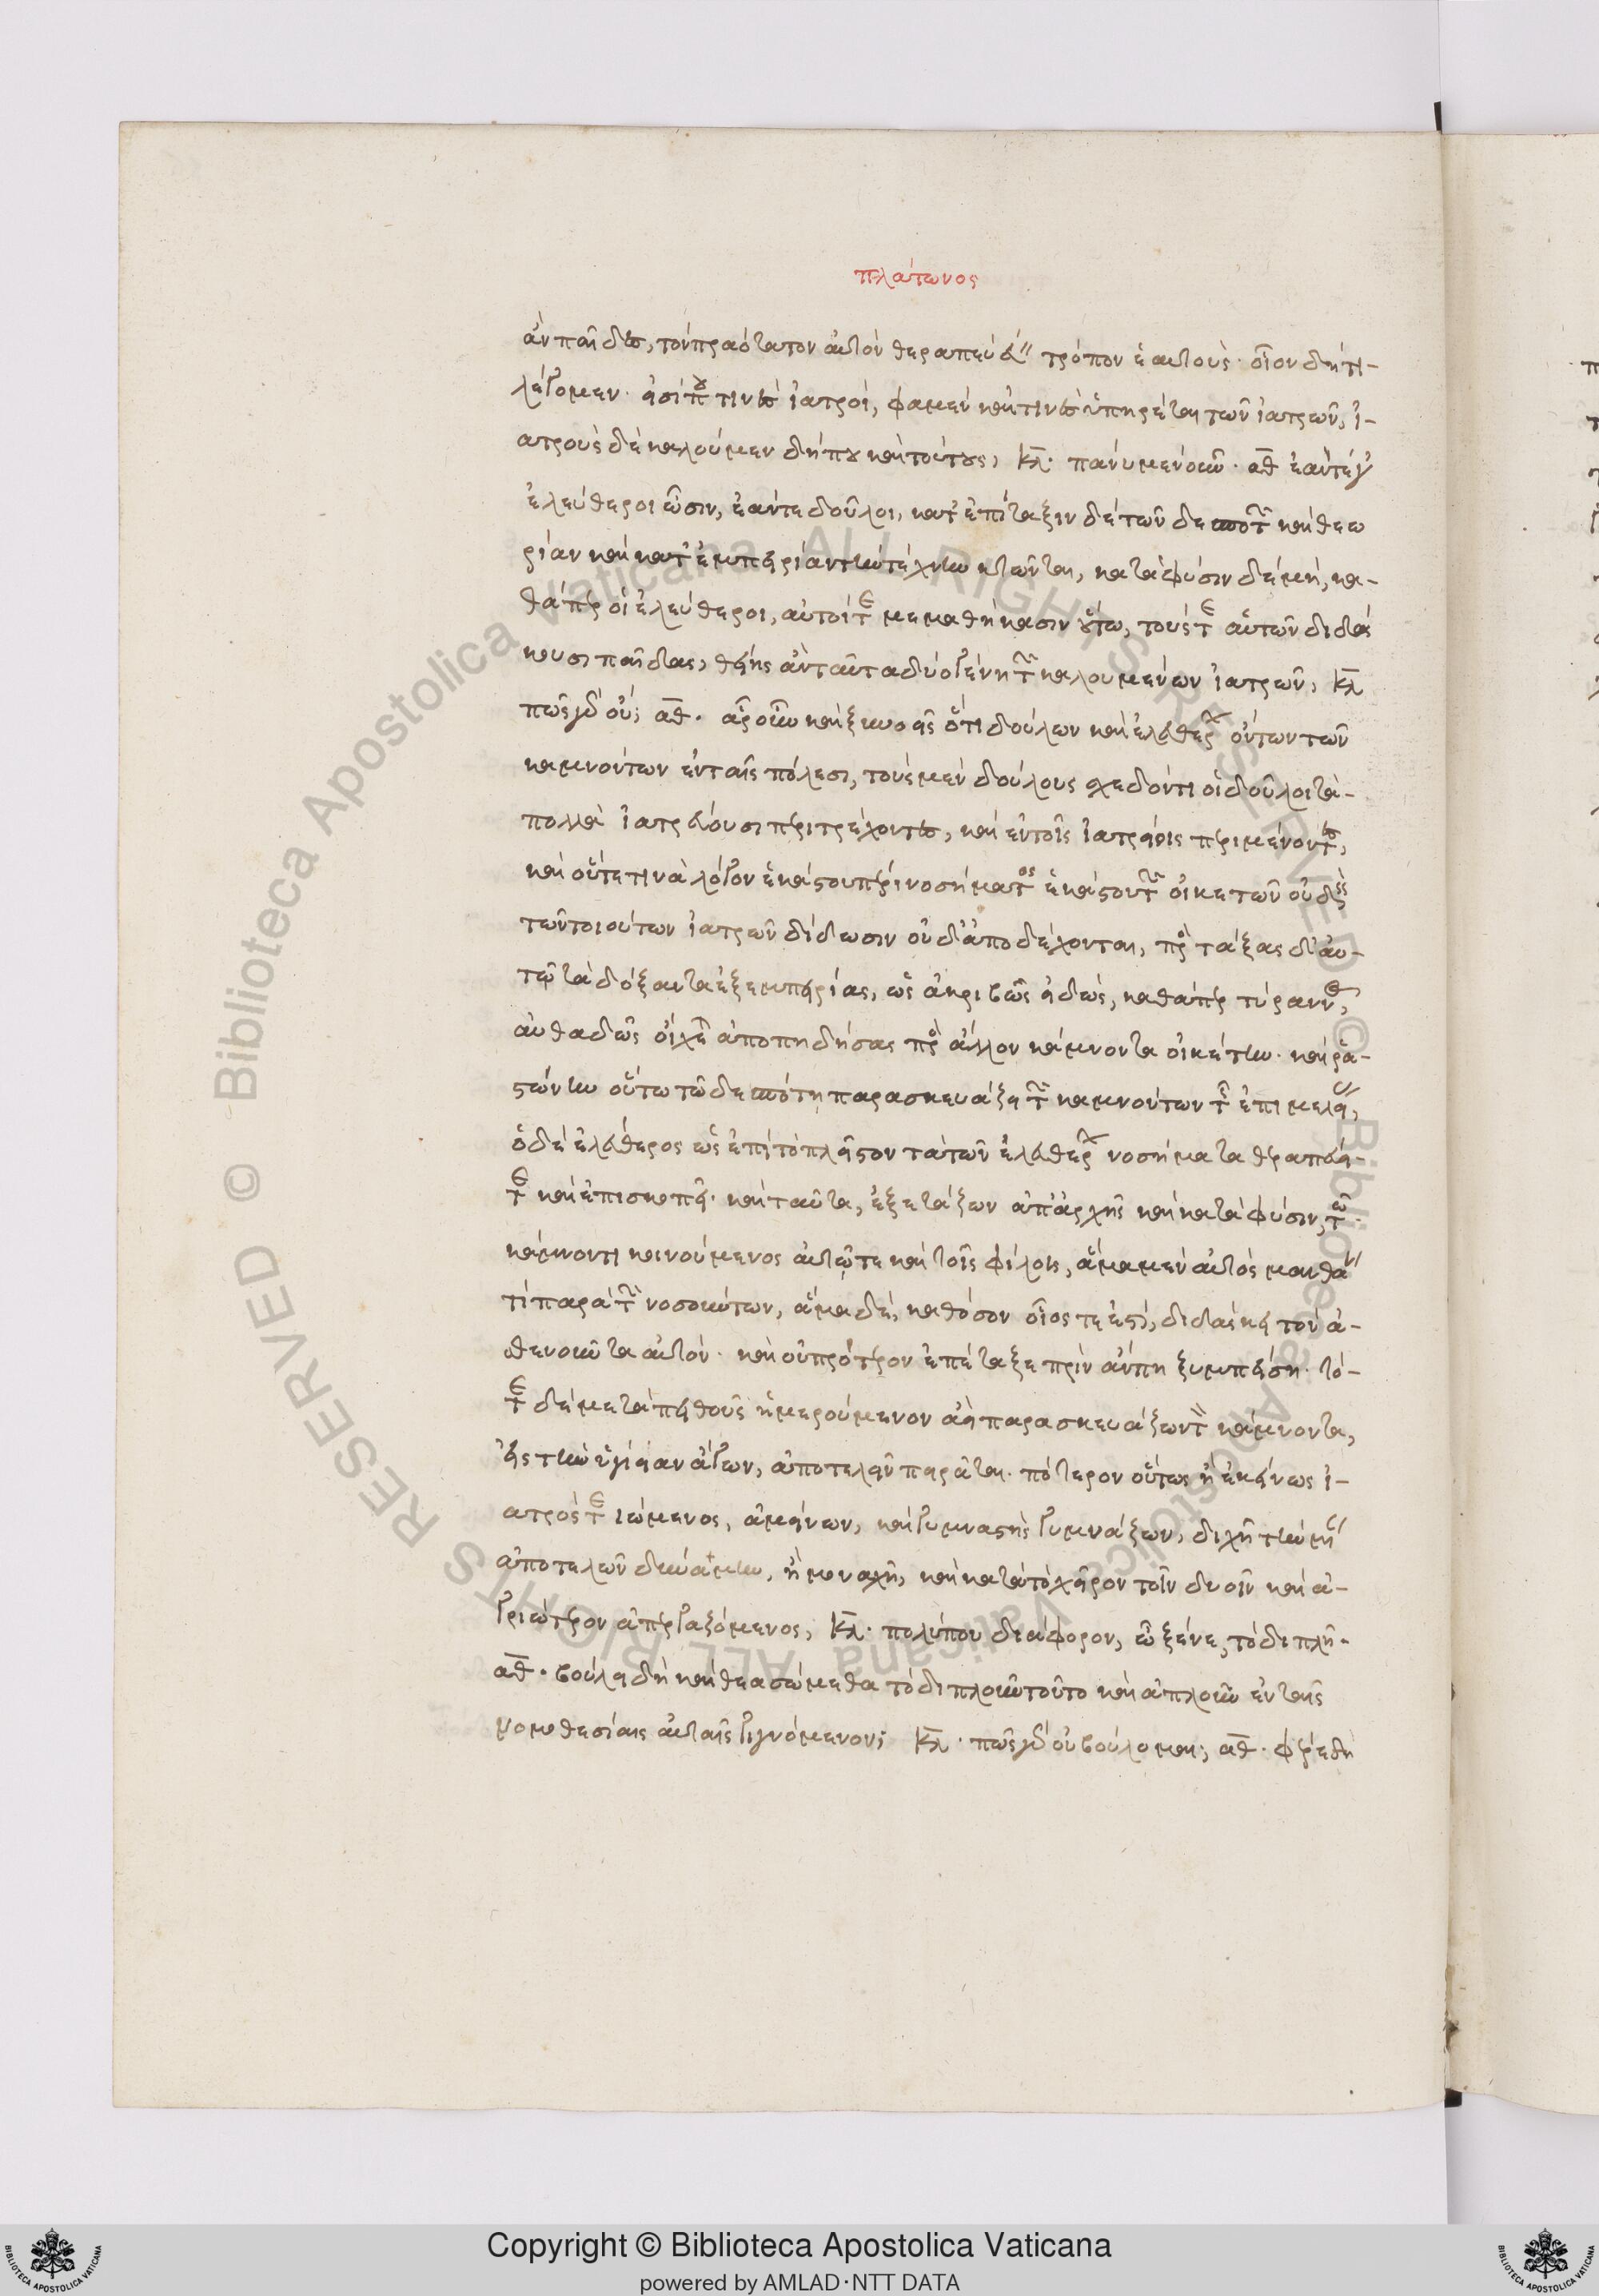 πλάτωνος
ἂν παῖδες, τὸν πραότατον αὐτὸν θεραπεύειν τρόπον ἑαυτούς· οἷον δή τι
λέγομεν· εἰσί που τινὲς ἰατροί, φαμὲν καί τινες ὑπηρέται τῶν ἰατρῶν, ἰ-
ατροὺς δὲ καλοῦμεν δήπου καὶ τούτους, κλ. πάνυ μὲν οὖν. αθ ἐάν τέ γ'
ἐλεύθεροι ὦσιν, ἐάν τε δοῦλοι, κατ' ἐπίταξιν δὲ τῶν δεσποτῶν καὶ θεω
ρίαν καὶ κατ' ἐμπειρίαν τὴν τέχνην κτῶνται, κατὰ φύσιν δὲ μή, κα-
θάπερ οἱ ἐλεύθεροι, αὐτοί τε μεμαθήκασιν οὕτω, τούς τε αὑτῶν διδάσ
κουσι παῖδας, θείης ἂν ταῦτα δύο γένη τῶν καλουμένων ἰατρῶν, κλ
πῶς γὰρ οὔ; αθ. ἆρ' οὖν καὶ ξυννοεῖς ὅτι δούλων καὶ ἐλευθέρων ὄντων τῶν
καμνόντων ἐν ταῖς πόλεσι, τοὺς μὲν δούλους σχεδόν τι οἱ δοῦλοι τὰ-
πολλὰ ἰατρεύουσι περιτρέχοντες, καὶ ἐν τοῖς ἰατρείοις περιμένοντες,
καὶ οὔτε τινὰ λόγον ἑκάστου περὶ νοσήματος ἑκάστου τῶν οἰκετῶν οὐδεὶς
τῶν τοιούτων ἰατρῶν δίδωσιν οὐδ' ἀποδέχονται, προστάξας δ' αὐ-
τῷ τὰ δόξαντα ἐξ ἐμπειρίας, ὡς ἀκριβῶς εἰδώς, καθάπερ τύραννος,
αὐθαδῶς οἴχεται ἀποπηδήσας πρὸς ἄλλον κάμνοντα οἰκέτην. καὶ ῥα-
στώνην οὕτω τῷ δεσπότῃ παρασκευάζει τῶν καμνόντων τῆς ἐπιμελείας,
ὁ δὲ ἐλεύθερος ὡς ἐπὶ τὸ πλεῖστον τὰ τῶν ἐλευθέρων νοσήματα θεραπεύει-
τε καὶ ἐπισκοπεῖ· καὶ ταῦτα, ἐξετάζων ἀπ' ἀρχῆς καὶ κατὰ φύσιν, τῷ
κάμνοντι κοινούμενος αὐτῷ τε καὶ τοῖς φίλοις, ἅμα μὲν αὐτὸς μανθάνει
τὶ παρὰ τῶν νοσούντων, ἅμα δὲ, καθόσον οἷός τε ἐστί, διδάσκει τὸν ἀ-
σθενοῦντα αὐτόν. καὶ οὐ πρότερον ἐπέταξε πρὶν ἄν πη ξυμπείσῃ. τό-
τε δὲ μετὰ πειθοῦς ἡμερούμενον ἀεὶ παρασκευάζων τὸν κάμνοντα,
εἰς τὴν ὑγίειαν ἄγων, ἀποτελεῖν πειρᾶται. πότερον οὕτως ἢ ἐκείνως ἰ-
ατρός τε ἰώμενος, ἀμείνων, καὶ γυμναστὴς γυμνάζων, διχῇ τὴν μίαν
ἀποτελῶν δύναμιν, ἢ μοναχῇ, καὶ κατὰ τὸ χεῖρον τοῖν δυοῖν καὶ ἀ-
γριώτερον ἀπεργαζόμενος, κλ. πολύ που διάφορον, ὦ ξένε, τὸ διπλῇ.
αθ. βούλει δὴ καὶ θεασώμεθα τὸ διπλοῦν τοῦτο καὶ ἁπλοῦν ἐν ταῖς
νομοθεσίαις αὐταῖς γιγνόμενον; κλ. πῶς γὰρ οὐ βούλομαι; αθ. φέρε δὴ
Copyright © Biblioteca Apostolica Vaticana
powered by AMLAD·NTT DATA